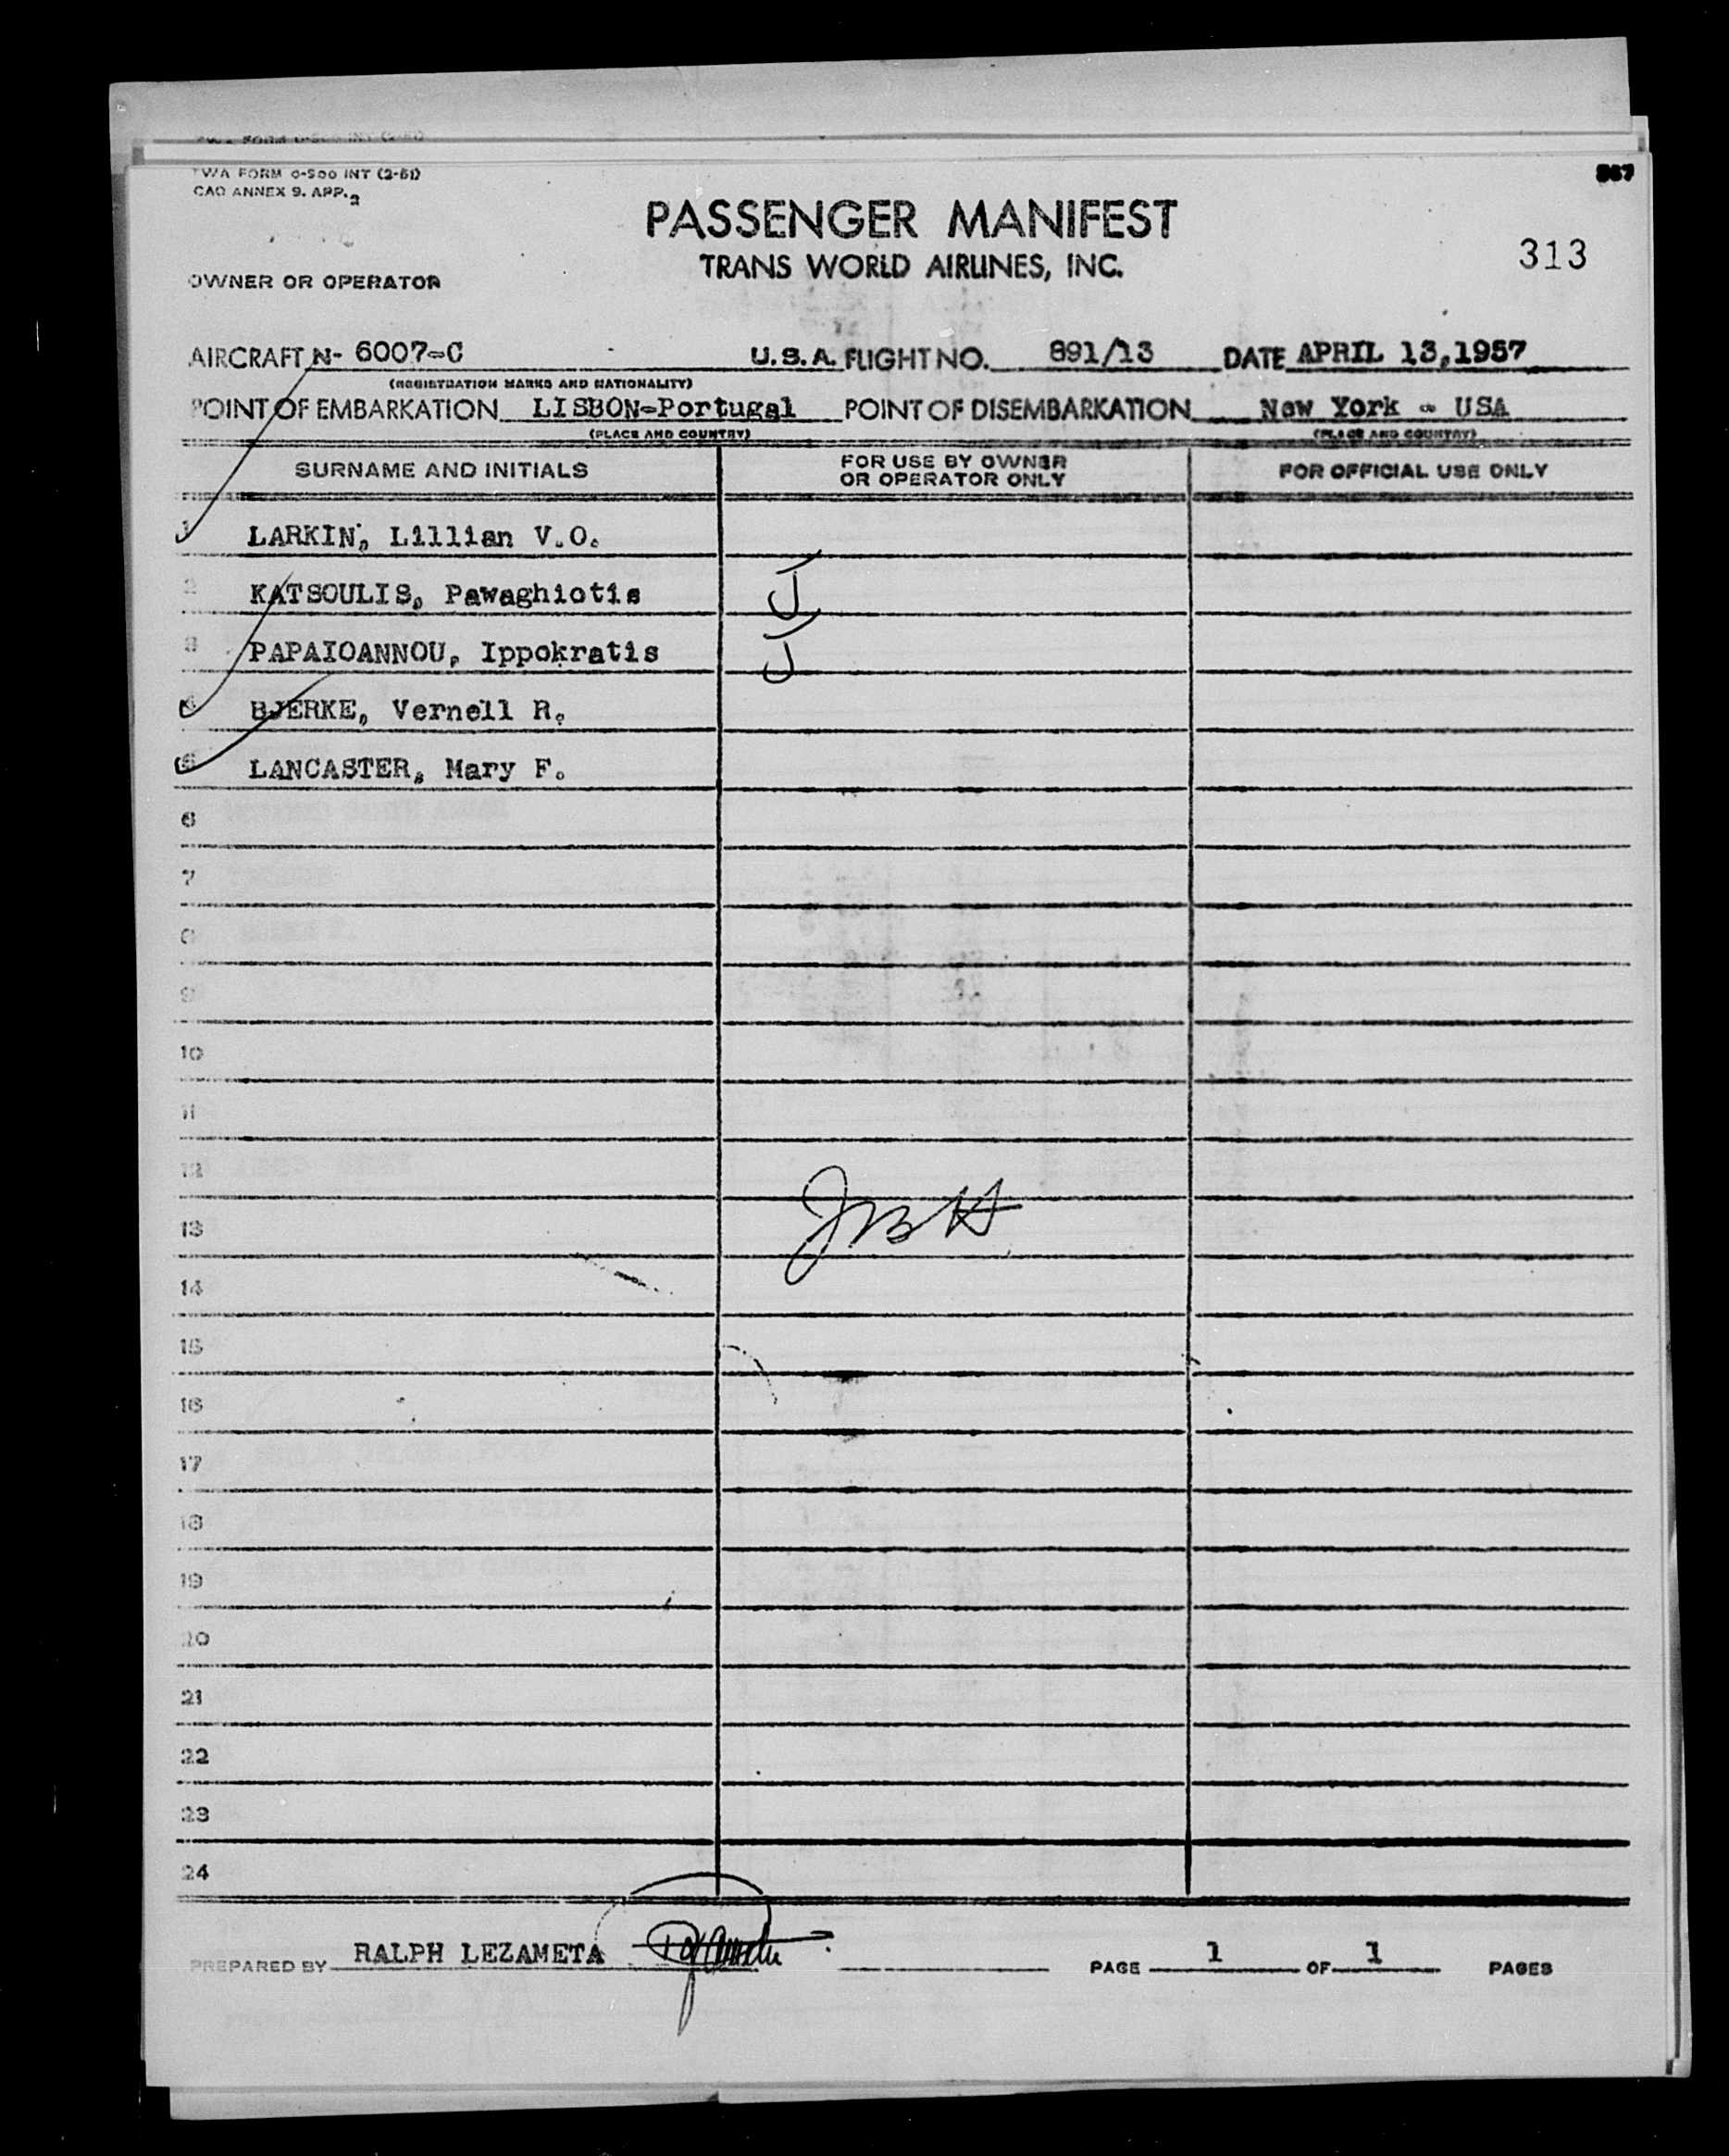 TWA FORM O-500 INT (2-51)
CAO ANNEX 9. APP. 2
PASSENGER MANIFEST
TRANS WORLD AIRLINES, INC.
313
OWNER OR OPERATOR
AIRCRAFT N- 6007-C U.S.A. FLIGHT NO. 891/13 DATE APRIL 13,1957
(REGISTRATION MARKS AND NATIONALITY)
POINT OF EMBARKATION LISBON-Portugal POINT OF DISEMBARKATION New York - USA
(PLACE AND COUNTRY) (PLACE AND COUNTRY)
SURNAME AND INITIALS FOR USE BY OWNER OR OPERATOR ONLY FOR OFFICIAL USE ONLY
1 LARKIN, Lillian V.O.
2 KATSOULIS, Pawaghiotis J
3 PAPAIOANNOU, Ippokratis J
4 BJERKE, Vernell R.
5 LANCASTER, Mary F.
6
7
8
9
10
11
12
13 JBH
14
15
16
17
18
19
20
21
22
23
24
PREPARED BY RALPH LEZAMETA PAGE 1 OF 1 PAGES